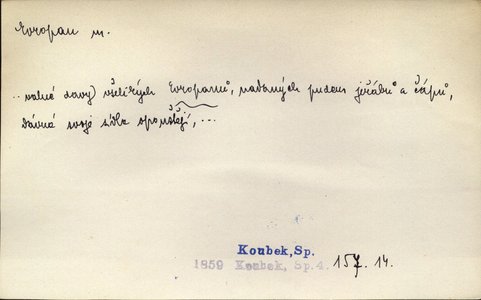 Evropan m.
..valné davy) všelikých Evropanů, nadaných pudem jeřábů a čápů,
dávná svoje sídla opouštějí, ...
Koubek, Sp.
1859 Koubek, Sp. 4. 157. 14.